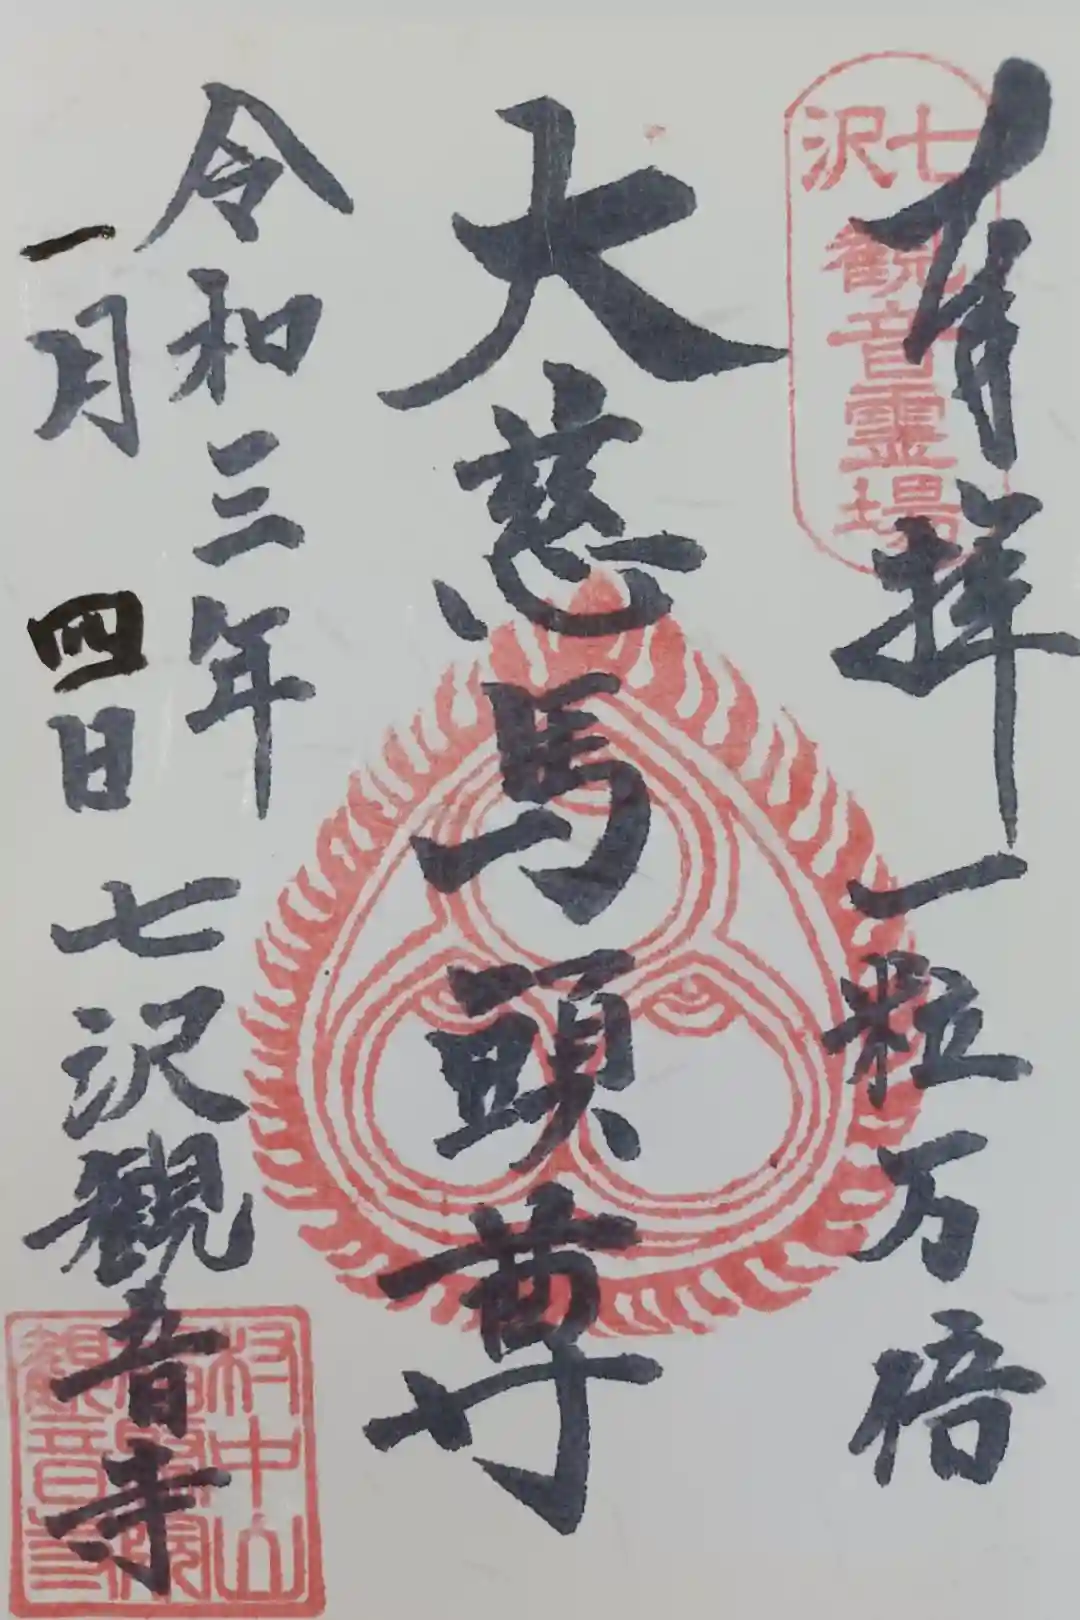 奉拝 一粒万倍
七沢
観音霊場
大慈馬頭尊
令和三年
一月 四日 七沢観音寺
村中山
観音寺